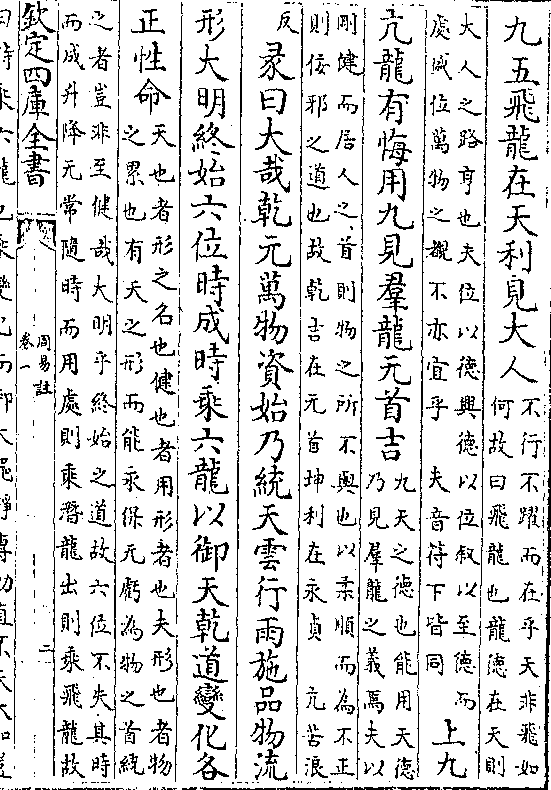 九五飛龍在天利見大人
不行不躍而在乎天非飛如
何故曰飛龍也龍德在天則
大人之路亨也夫位以德興德以位叙以至德而
處盛位萬物之覩不亦宜乎 夫音符下皆同
上九
亢龍有悔用九見羣龍无首吉
九天之德也能用天德
乃見羣龍之義焉夫以
剛健而居人之首則物之所不與也以柔順而為不正
則佞邪之道也故乾吉在无首坤利在永貞 亢苦浪
反
彖曰大哉乾元萬物資始乃統天雲行雨施品物流
形大明終始六位時成時乘六龍以御天乾道變化各
正性命
天也者形之名也健也者用形者也夫形也者物
之累也有天之形而能永保无虧為物之首統
之者豈非至健哉大明乎終始之道故六位不失其時
而成升降无常隨時而用處則乘潛龍出則乘飛龍故
欽定四庫全書
周易註
卷一
二